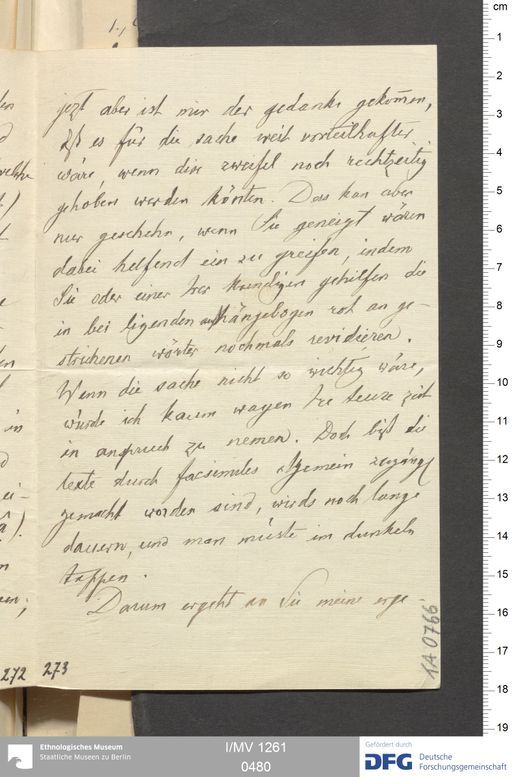 jezt aber ist mir der gedanke gekom̄en,
dß es für die sache weit vorteilhafter
wäre, wenn dise zweifel noch rechtzeitig
gehoben werden könten. Das kan aber
nur geschehn, wenn Sie geneigt wären
dabei helfend ein zu greifen, indem
Sie oder einer Irer kundigen gehilfen die
in bei ligenden aushängebogen rot an ge-
strichenen wörter nochmals revidieren.
Wenn die sache nicht so wichtig wäre,
würde ich kaum wagen Ire teure zeit
in anspruch zu nemen. Doch biß die
texte durch facsimiles algemein zugängl
gemacht worden sind, wirds noch lange
dauern, und man müste im dunkeln
tappen.
Darum ergeht an Sie meine erge-
272 273
1A 0766
cm
1
2
3
4
5
6
7
8
9
10
11
12
13
14
15
16
17
18
19
Ethnologisches Museum
Staatliche Museen zu Berlin
I/MV 1261
0480
Gefördert durch
DFG Deutsche
Forschungsgemeinschaft